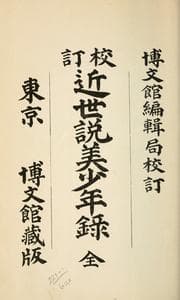 博文館編輯局校訂
校訂
近世説美少年録 全
東京 博文館蔵版